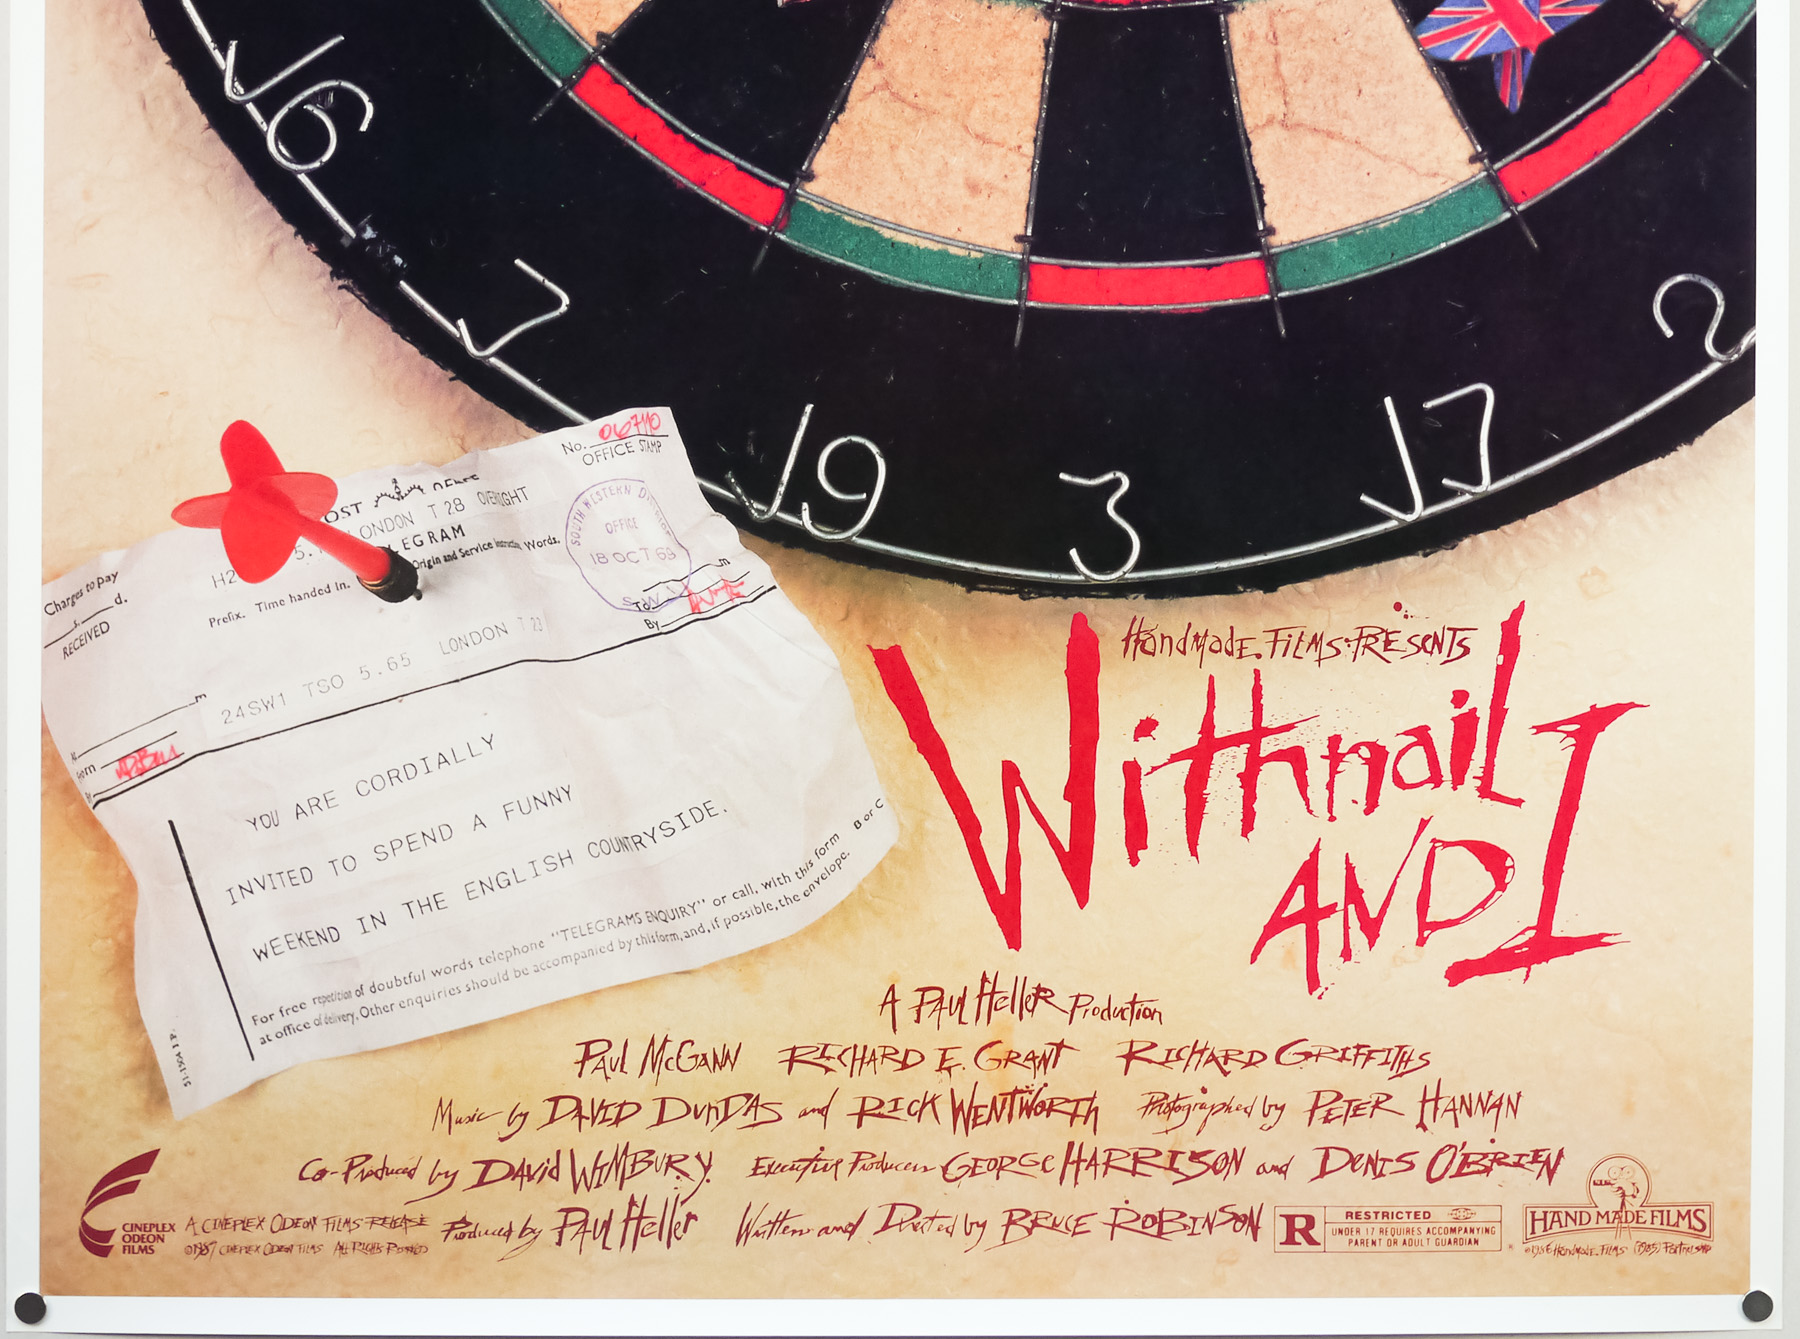 16
7
19
3
17
2
No. 06710
OFFICE STAMP
OST
LONDON T 28 OVERNIGHT
EGRAM
Prefix. Time handed In. Origin and Service Instructions Words.
SOUTH WESTERN
OFFICE
18 OCT 69
S W 1
Charges to pay
s. d.
RECEIVED
m
To
By
24SW1 TSO 5.65 LONDON T 23
m
From
By
YOU ARE CORDIALLY
INVITED TO SPEND A FUNNY
WEEKEND IN THE ENGLISH COUNTRYSIDE.
For free repetition of doubtful words telephone "TELEGRAMS ENQUIRY" or call, with this form
at office of delivery. Other enquiries should be accompanied by this form, and, if possible, the envelope.
B or C
HandMade Films Presents
Withnail
AND I
A PAUL Heller Production
PAUL McGANN RICHARD E. GRANT RICHARD GRIFFITHS
Music by DAVID DUNDAS and RICK WENTWORTH Photographed by PETER HANNAN
Co-Produced by DAVID WIMBURY Executive Producers GEORGE HARRISON and DENIS O'BRIEN
Produced by PAUL Heller Written and Directed by BRUCE ROBINSON
CINEPLEX
ODEON
FILMS
A CINEPLEX ODEON FILMS RELEASE
©1987 CINEPLEX ODEON FILMS ALL RIGHTS RESERVED
R RESTRICTED
UNDER 17 REQUIRES ACCOMPANYING
PARENT OR ADULT GUARDIAN
HAND MADE FILMS